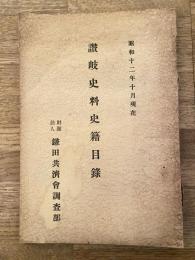 昭和十二年十月現在
讃岐史料史籍目錄
財團法人 鎌田共濟會調査部